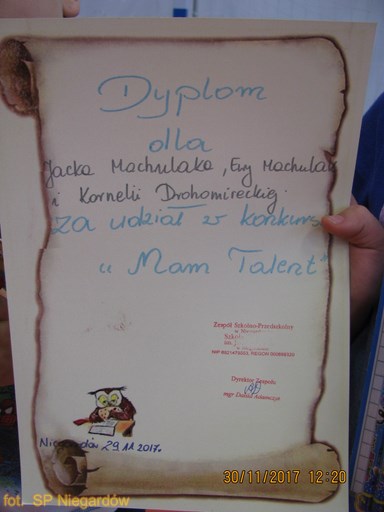 Dyplom
dla
Jacka Machulaka, Ewy Machulak
i Kornelii Drohomireckiej.
za udział w konkurs
"Mam Talent"
Zespół Szkolno-Przedszkolny
Dyrektor Zespołu
mgr
Niegardów 29.11.2017.
30/11/2017 12:20
fot. SP Niegardów